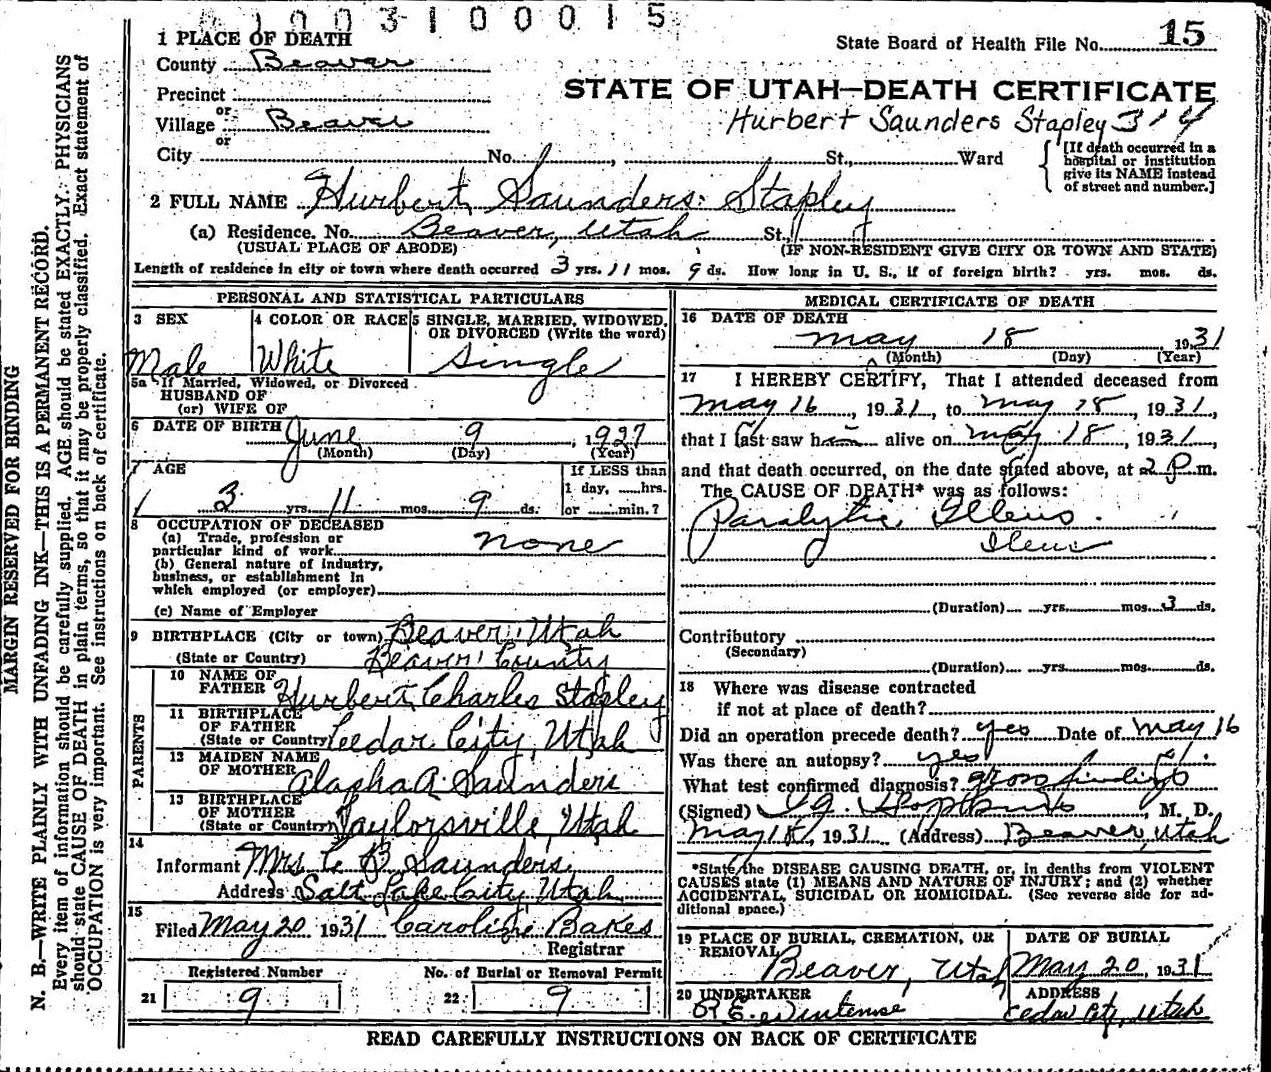 1003100015
1 PLACE OF DEATH
State Board of Health File No. 15
County Beaver
STATE OF UTAH—DEATH CERTIFICATE
Precinct
or
Village Beaver
Hurbert Saunders Stapley 314
or
City No. , St., Ward
[If death occurred in a hospital or institution give its NAME instead of street and number.]
2 FULL NAME Hurbert Saunders Stapley
(a) Residence. No. Beaver, Utah St.,
(USUAL PLACE OF ABODE) (IF NON-RESIDENT GIVE CITY OR TOWN AND STATE)
Length of residence in city or town where death occurred 3 yrs. 11 mos. 9 ds. How long in U. S., if of foreign birth? yrs. mos. ds.
PERSONAL AND STATISTICAL PARTICULARS
3 SEX
Male
4 COLOR OR RACE
White
5 SINGLE, MARRIED, WIDOWED, OR DIVORCED (Write the word)
Single
5a If Married, Widowed, or Divorced
HUSBAND OF
(or) WIFE OF
6 DATE OF BIRTH June 9, 1927
(Month) (Day) (Year)
7 AGE
3 yrs. 11 mos. 9 ds.
If LESS than
1 day, hrs.
or min.?
8 OCCUPATION OF DECEASED
(a) Trade, profession or
particular kind of work none
(b) General nature of industry,
business, or establishment in
which employed (or employer)
(c) Name of Employer
9 BIRTHPLACE (City or town) Beaver, Utah
(State or Country) Beaver County
PARENTS
10 NAME OF
FATHER Hurbert Charles Stapley
11 BIRTHPLACE
OF FATHER
(State or Country) Cedar City, Utah
12 MAIDEN NAME
OF MOTHER Alapha A. Saunders
13 BIRTHPLACE
OF MOTHER
(State or Country) Taylorsville, Utah
14
Informant Mrs. C B Saunders
Address Salt Lake City, Utah
15
Filed May 20 1931 Caroline Bakes
Registrar
Registered Number
21 9
No. of Burial or Removal Permit
22 9
MEDICAL CERTIFICATE OF DEATH
16 DATE OF DEATH
May 18 1931
(Month) (Day) (Year)
17 I HEREBY CERTIFY, That I attended deceased from
May 16, 1931, to May 18, 1931,
that I last saw him alive on May 18, 1931,
and that death occurred, on the date stated above, at 2 P.m.
The CAUSE OF DEATH* was as follows:
Paralytic Illeus
Ileus
(Duration) yrs. mos. 3 ds.
Contributory
(Secondary)
(Duration) yrs. mos. ds.
18 Where was disease contracted
if not at place of death?
Did an operation precede death? yes Date of May 16
Was there an autopsy? yes
What test confirmed diagnosis? gross findings
(Signed) M. D.
May 18, 1931 (Address) Beaver, Utah
*State the DISEASE CAUSING DEATH, or, in deaths from VIOLENT
CAUSES state (1) MEANS AND NATURE OF INJURY; and (2) whether
ACCIDENTAL, SUICIDAL OR HOMICIDAL. (See reverse side for ad-
ditional space.)
19 PLACE OF BURIAL, CREMATION, OR
REMOVAL
Beaver, Utah
DATE OF BURIAL
May 20, 1931
20 UNDERTAKER
ADDRESS
Cedar City, Utah
READ CAREFULLY INSTRUCTIONS ON BACK OF CERTIFICATE
MARGIN RESERVED FOR BINDING
N. B.—WRITE PLAINLY WITH UNFADING INK—THIS IS A PERMANENT RECORD.
Every item of information should be carefully supplied. AGE should be stated EXACTLY. PHYSICIANS
should state CAUSE OF DEATH in plain terms, so that it may be properly classified. Exact statement of
OCCUPATION is very important. See instructions on back of certificate.